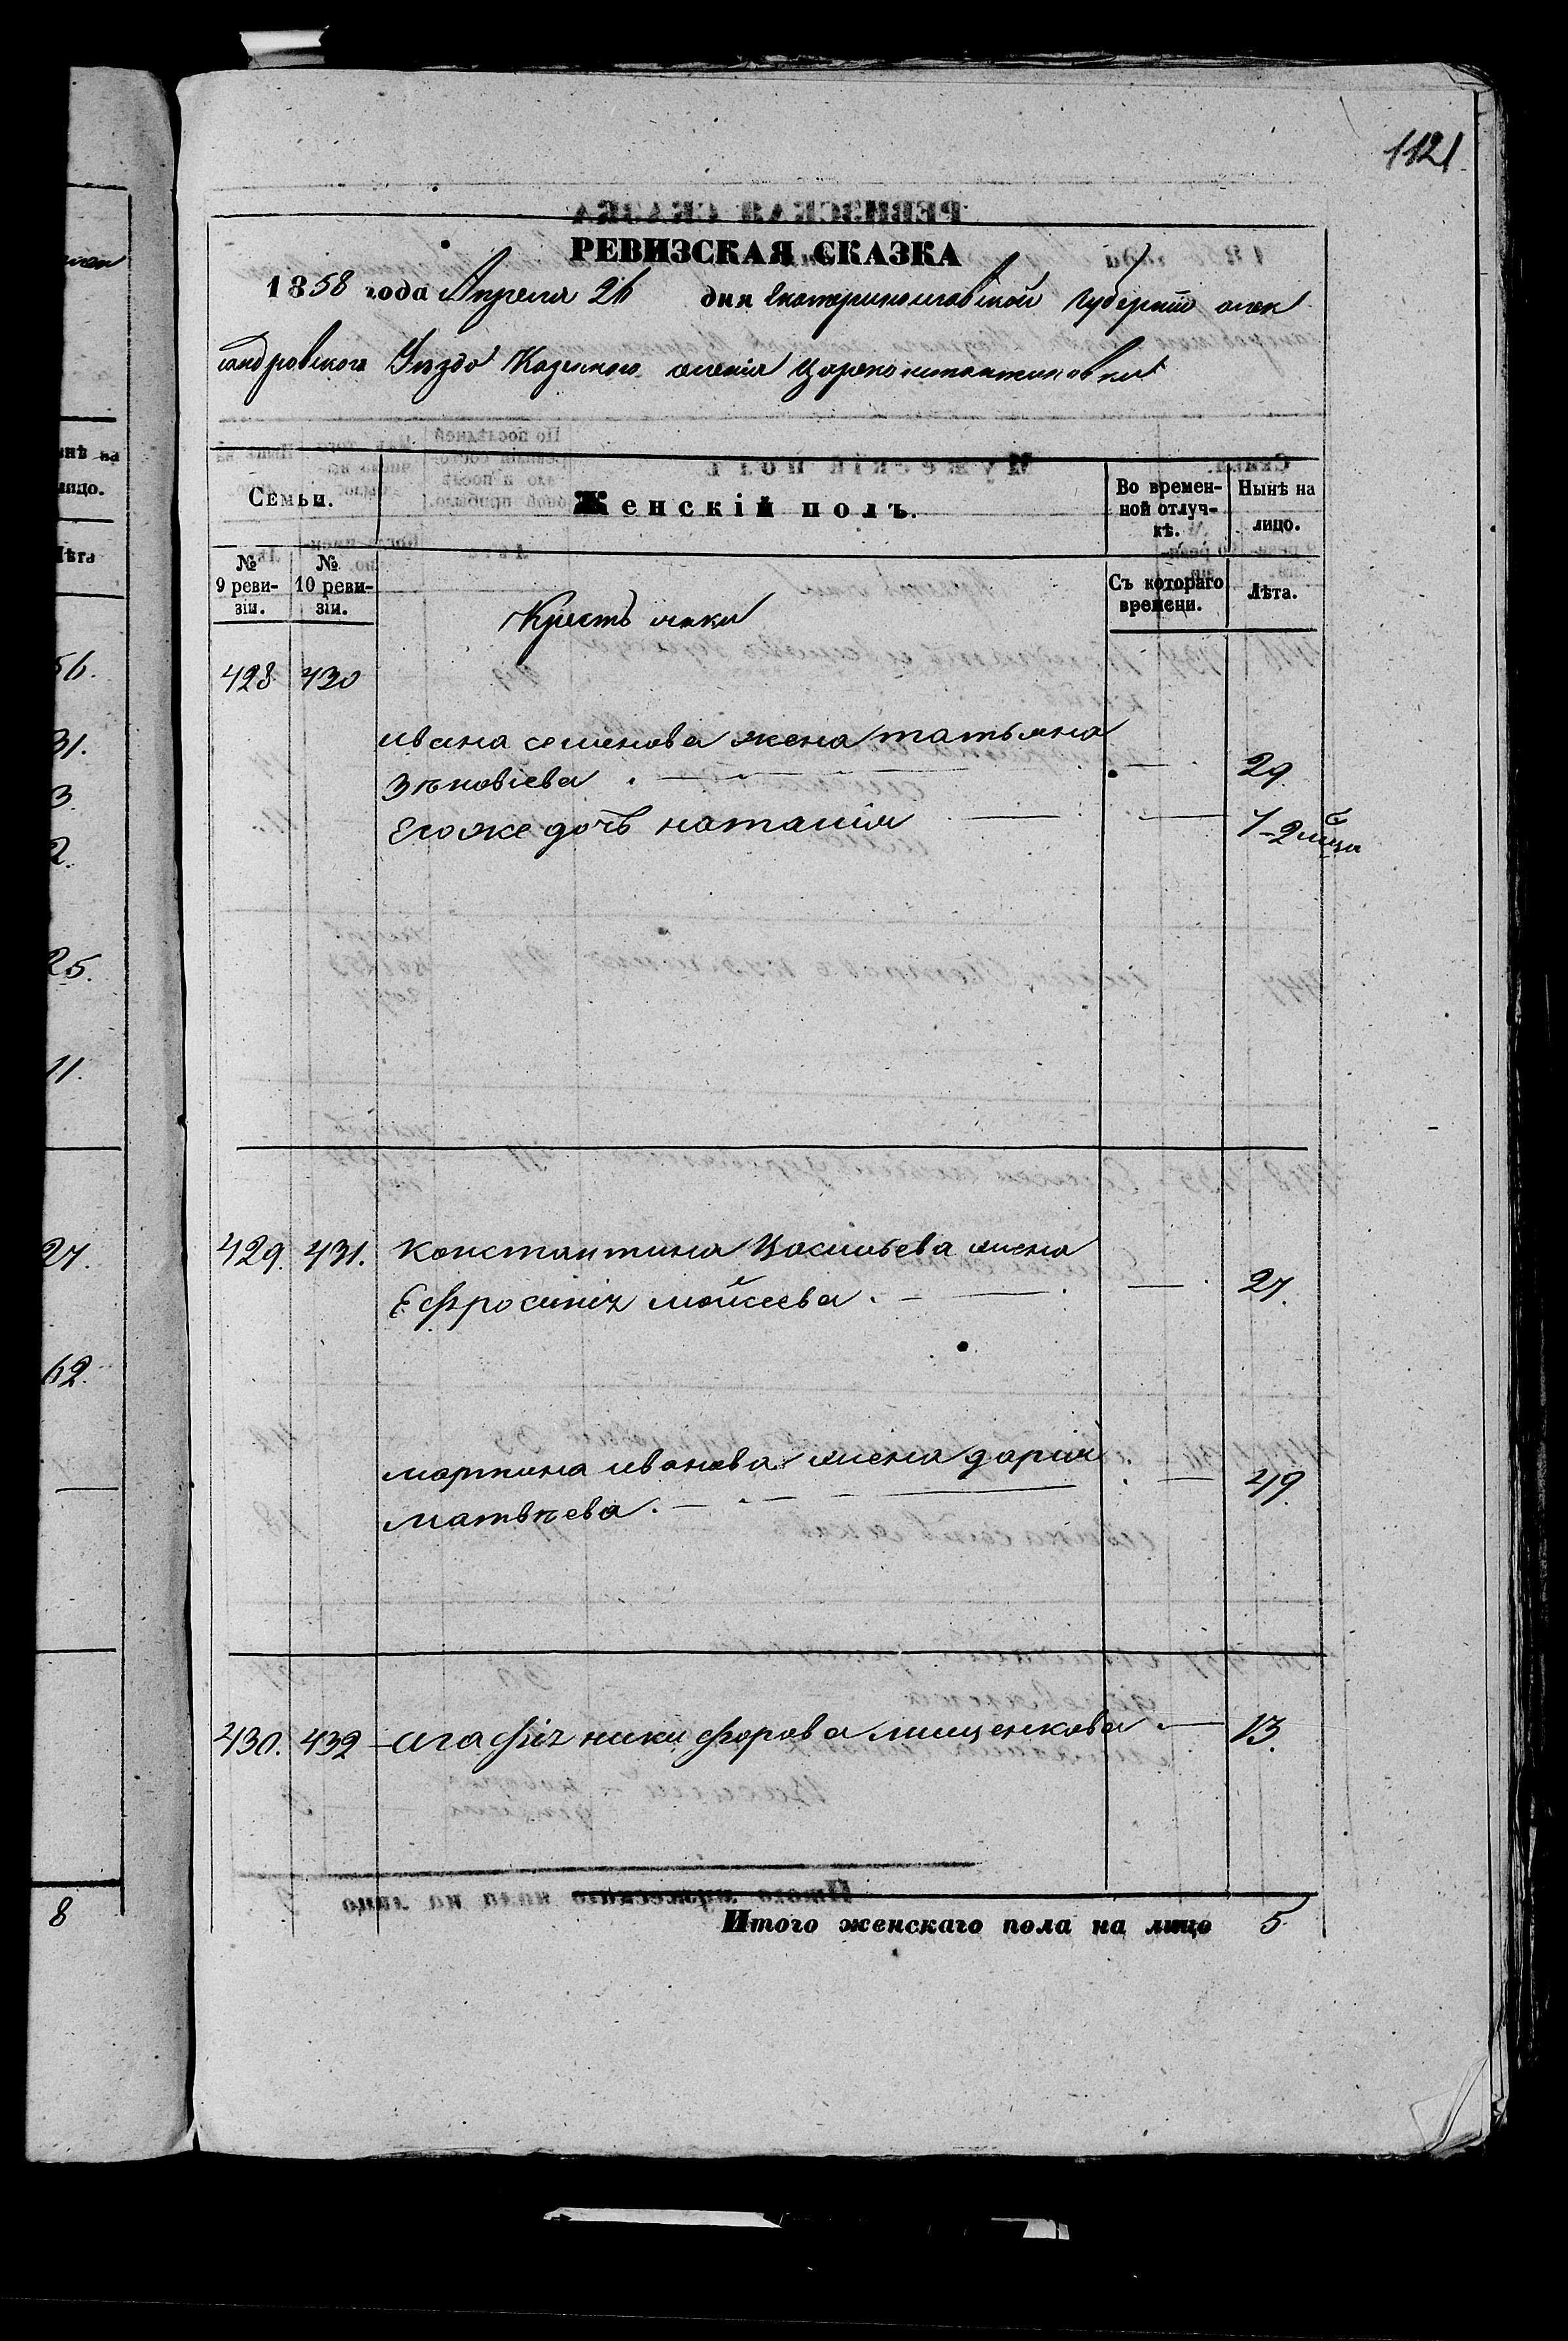 1121
РЕВИЗСКАЯ СКАЗКА
1858 года Апреля 26 дня Екатеринославской Губернiи алек
сандровского Уезда Казенного селенiя Цареконстантиновки
Семьи.
Женскій полъ.
Во времен-
ной отлуч-
кѣ.
Нынѣ на
лицо.
№
9 реви-
зіи.
№
10 реви-
зіи.
Съ котораго
времени.
Лѣта.
Крестьянки
428 430
ивана семенова жена татьяна
Зѣновiева 29.
Егоже дочь наталiя 1-2 мѣсца
429. 431. Константина Васильева жена
Ефросинiя мойсеева. 27.
мартина иванова жена дарiя
матвѣева. 49.
430. 432 агафiя никифорова мищенкова 13.
Итого женскаго пола на лицо 5
нѣ на
лицо.
Лѣта
56.
31.
3.
2.
25.
11.
27.
62.
8